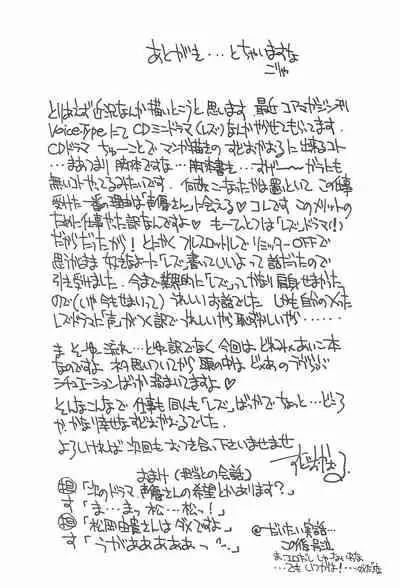 あとがき・・・とちゃいますな
ごや
とりあえず近況なんか描いとこうと思います。最近コアマガジン刊
VoiceTypeにてCDミニドラマ(レズ)なんかやらせてもらってます。
CDドラマちゅーことでマンガ描きのすどおかおるに出来るコト
・・・まあつまり脚本ですな・・・脚本書き・・・すげ〜〜〜ガラにも
無いコトやってるみたいです。何故こーなったかは置いといて、この仕事
受けた一番の理由は「声優さん」に会える♥コレです このメリットの
ために仕事やった訳なんですよ♥ もーひとつは「レズ」ドラマ(!)
だからだったから!とにかくフルスロットルでリミッターOFFで
思うがまま好きなよーに「レズ」書いていいよって話だったので
引き受けました。今まで世間的に「レズ」ってかなり肩身せまかった
ので(いや今もせまいって)うれしいお話でした しかも自分のつくった
レズドラマに「声」がつく訳でうれしいやら恥ずかしいやら・・・・・・
ま そーゆー流れ・・・とゆー訳でなく今回は どれみ×あいこ本
なのですよ ネタ思いついてから頭の中は ど×あの ラブラブ
シチュエーションばっか詰まってますよ♥
そんなこんなで仕事も同人も「レズ」ばっかでちょっと・・・どころ
か、かなり幸せなすどおかおるでした。
よろしければ次回もおつき合い下さいませませ
すどおかおる
おまけ(担当との会話)
担「次のドラマ、声優さんの希望とかあります?」
す「ま・・・まっ松・・・松っ!」
担「松岡由貴さんはダメですよ。」
す「うがぁああああっ
@だいたい実話・・・
この後発注